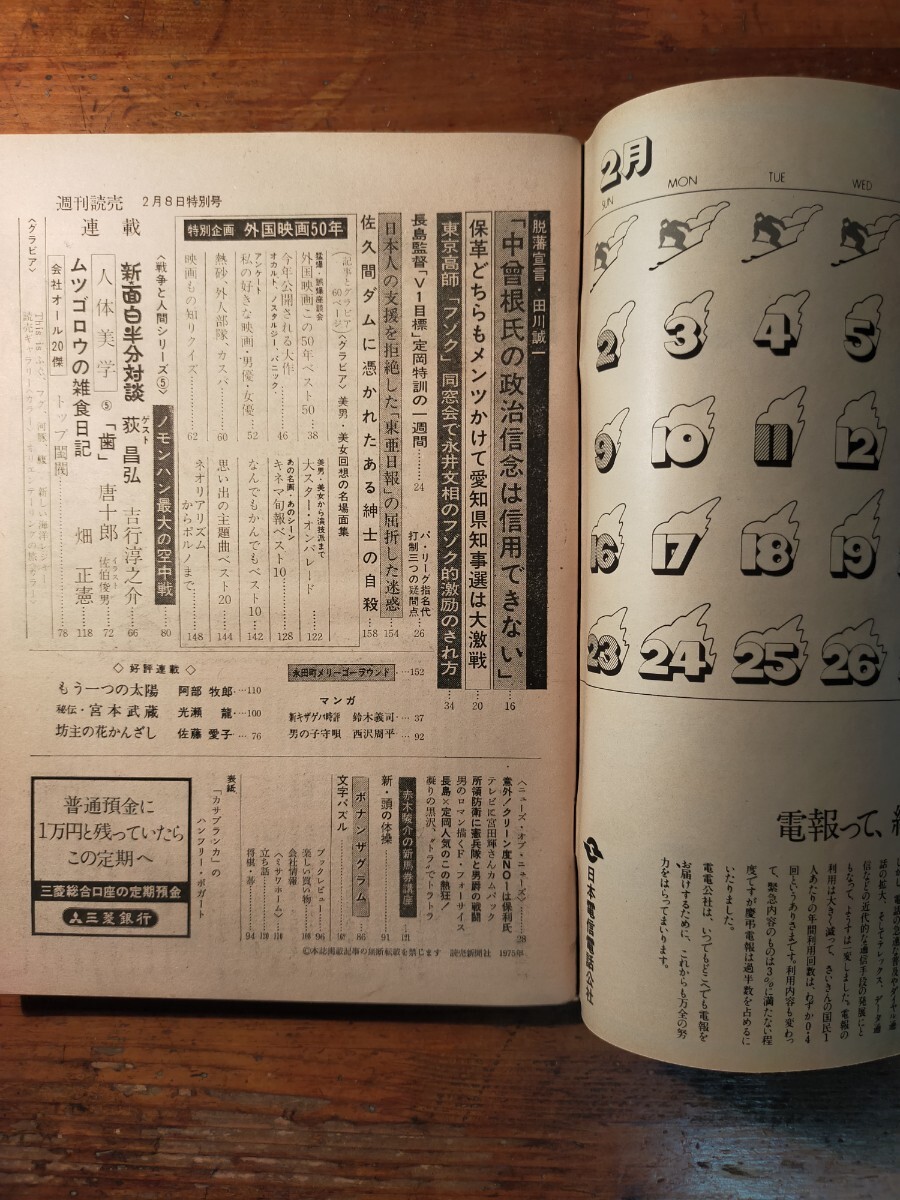 週刊読売 2月8日特別号
脱藩宣言・田川誠一
「中曾根氏の政治信念は信用できない」 16
保革どちらもメンツかけて愛知県知事選は大激戦 20
東京高師「フゾク」同窓会で永井文相のフゾク的激励のされ方 34
長島監督「V1目標」定岡特訓の一週間 24
パ・リーグ指名代打制三つの疑問点 26
佐久間ダムに憑かれたある紳士の自殺 158
日本人の支援を拒絶した「東亜日報」の屈折した迷惑 154
特別企画 外国映画50年
〈記事とグラビア60ページ〉
〈グラビア〉美男・美女回想の名場面集
猛爆・誤爆座談会
外国映画この50年ベスト50 38
オカルト、ノスタルジー、パニック
今年公開される大作 46
アンケート
私の好きな映画・男優・女優 52
熱砂、外人部隊、カスバ 60
映画もの知りクイズ 62
美男・美女から演技派まで
大スター・オンパレード 122
あの名画・あのシーン
キネマ旬報ベスト10 128
なんでもかんでもベスト10 142
思い出の主題曲ベスト20 144
ネオリアリズムからポルノまで 148
連載
〈戦争と人間シリーズ⑤〉
ノモンハン最大の空中戦 80
新・面白半分対談 ゲスト 荻昌弘 吉行淳之介 66
人体美学⑤「歯」 唐十郎 イラスト 佐伯俊男 72
ムツゴロウの雑食日記 畑正憲 118
会社オール20傑 トップ閨閥 78
〈グラビア〉
永田町メリーゴーラウンド 152
◇好評連載◇
もう一つの太陽 阿部牧郎 110
秘伝・宮本武蔵 光瀬龍 100
坊主の花かんざし 佐藤愛子 76
マンガ
新キザゲバ時評 鈴木義司 37
男の子守唄 西沢周平 92
〈ニューズ・オブ・ニューズ〉 28
意外！クリーン度NO1は保利氏
テレビに宮田輝さんカムバック
所領防衛に憲兵隊と男爵の戦闘
男のロマン描くド・フォーサイス
長島×定岡人気のこの熱狂！
凝りの黒沢、“トラ”でトラトラ
赤木駿介の新馬券講座 121
新・頭の体操 91
ボナンザグラム 86
文字パズル 107
ブックレビュー 96
楽しい買い物 108
会社情報
〈ミサワホーム〉 120
立ち話 110
将棋・碁 94
表紙
「カサブランカ」の
ハンフリー・ボガート
普通預金に
1万円と残っていたら
この定期へ
三菱総合口座の定期預金
三菱銀行
©本誌掲載記事の無断転載を禁じます 読売新聞社 1975年
2月
SUN MON TUE WED
2 3 4 5
9 10 11 12
16 17 18 19
23 24 25 26
電報って、
日本電信電話公社
話の拡大、そしてテレックス、データ通
信などの近代的な通信手段の発展にと
もなって、ようすは一変しました。電報の
利用は大きく減って、さいきんの国民1
人あたりの年間利用回数は、わずか0.4
回というありさまです。利用内容も変わっ
て、緊急内容のものは3%に満たない程
度ですが慶弔電報は過半数を占めるに
いたりました。
電電公社は、いつでもどこへでも電報を
お届けするために、これからも万全の努
力をはらってまいります。